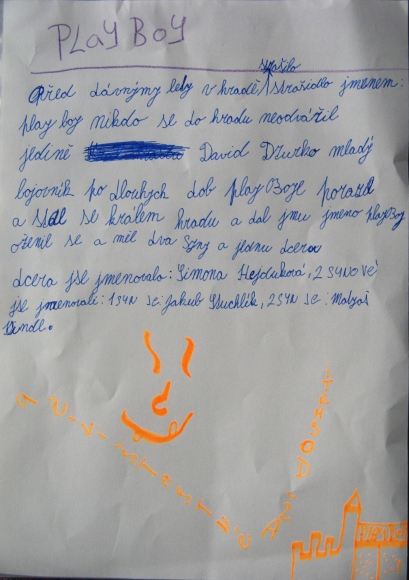 PLAY BOY
strašilo
Před dávnýmy lety v hradě strašidlo jmenem:
play boy nikdo se do hradu neodvážil
jedině David Dzurko mladý
bojovnik po dlouhych dob play Boje porazil
a stal se kralem hradu a dal jmu jmeno playBoy
oženil se a měl dva Syny a jednu dceru
dcera jse jmenovala: Simona Hejduková, 2 SYNOVÉ
jse jmenovali: 1 SYN se: Jakub Suchlík, 2 SYN se. Matyaš